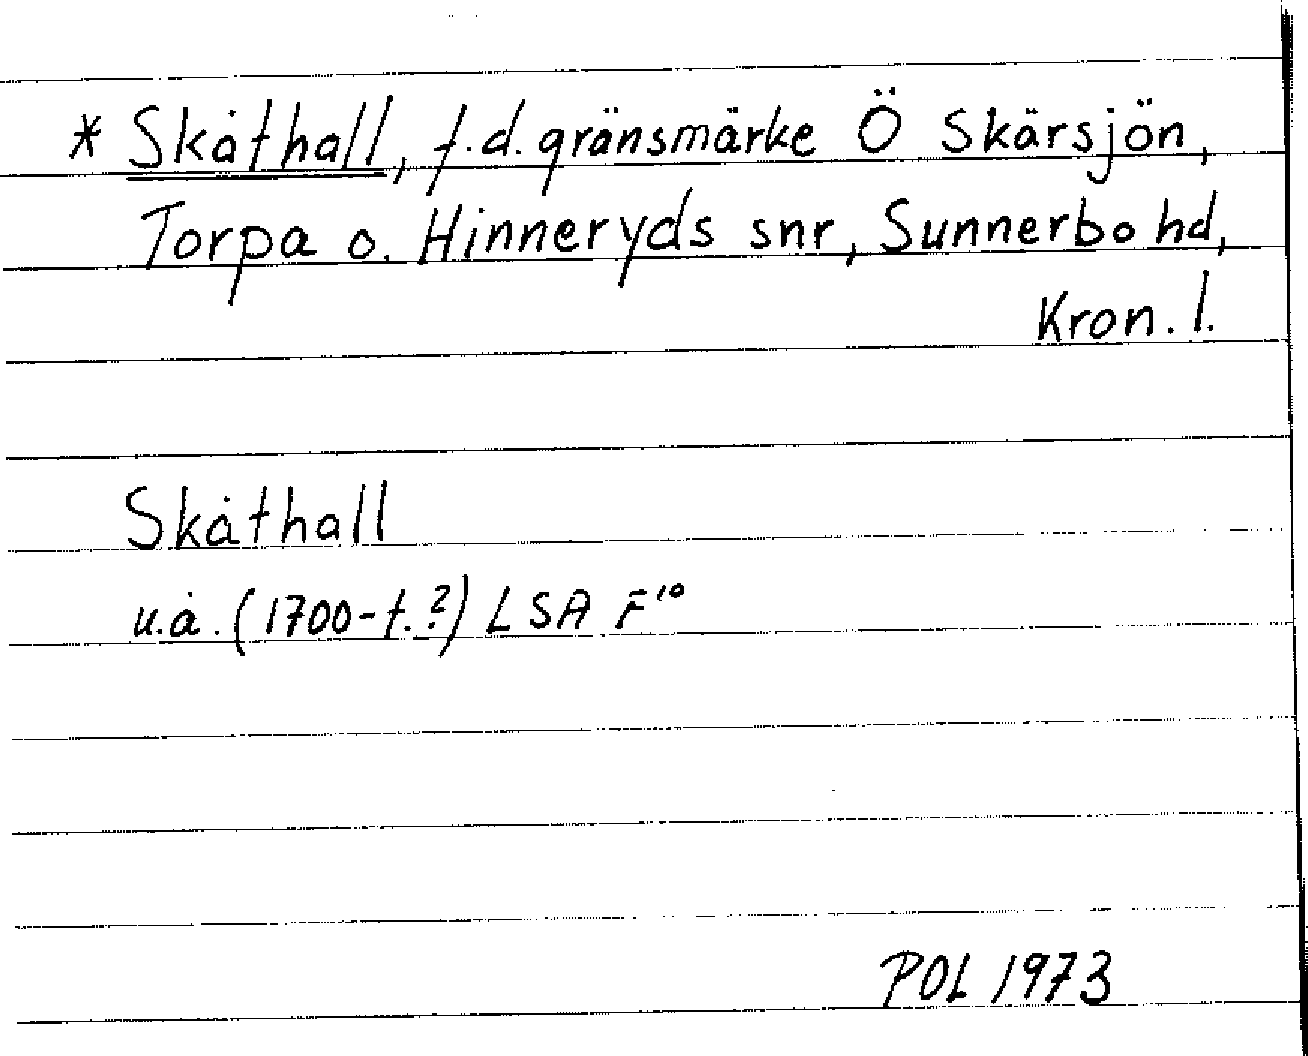 * Skåthall, f.d. gränsmärke Ö Skärsjön,
Torpa o. Hinneryds snr, Sunnerbo hd,
Kron. l.
Skåthall
u.å. (1700-t.?) LSA F¹⁰
POL 1973